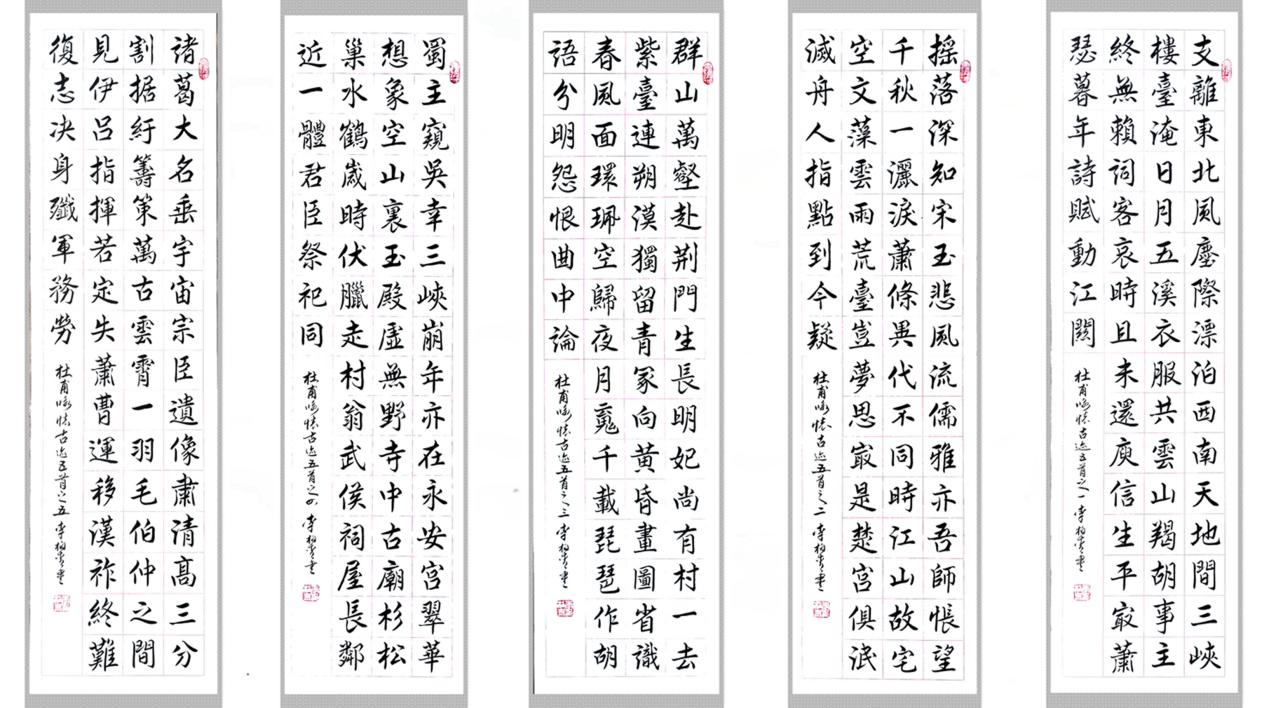 支離東北風塵際漂泊西南天地間三峽
樓臺淹日月五溪衣服共雲山羯胡事主
終無賴詞客哀時且未還庾信生平㝡蕭
瑟暮年詩賦動江關
杜甫咏懷古迹五首之一 李
搖落深知宋玉悲風流儒雅亦吾師悵望
千秋一灑淚蕭條異代不同時江山故宅
空文藻雲雨荒臺豈夢思㝡是楚宮俱泯
滅舟人指點到今疑
杜甫咏懷古迹五首之二 李
群山萬壑赴荆門生長明妃尚有村一去
紫臺連朔漠獨留青冢向黃昏畫圖省識
春風面環珮空歸夜月䰟千載琵琶作胡
語分明怨恨曲中論
杜甫咏懷古迹五首之三 李
蜀主窺吳幸三峽崩年亦在永安宮翠華
想象空山裏玉殿虛無野寺中古廟杉松
巢水鶴歲時伏臘走村翁武侯祠屋長鄰
近一體君臣祭祀同
杜甫咏懷古迹五首之四 李
諸葛大名垂宇宙宗臣遺像肅清高三分
割据紆籌策萬古雲霄一羽毛伯仲之間
見伊呂指揮若定失蕭曹運移漢祚終難
復志决身殲軍務勞
杜甫咏懷古迹五首之五 李